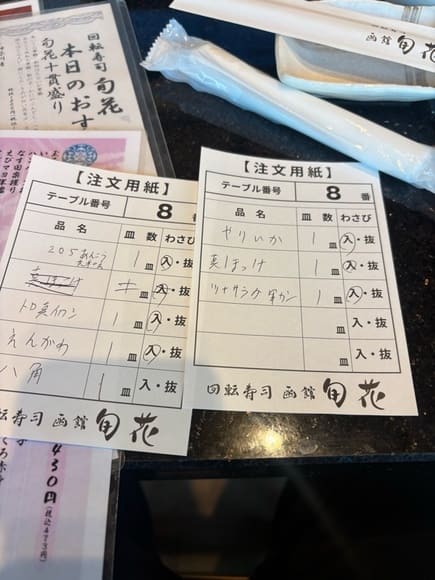 函館 旬花
回転寿司 旬花
本日のおす
旬花十貫盛り
【注文用紙】
テーブル番号 8
品名 皿数 わさび
1皿 入・抜
真ほっけ 皿 入・抜
1皿 入・抜
えんがわ 1皿 入・抜
八角 1皿 入・抜
回転寿司 函館 旬花
【注文用紙】
テーブル番号 8 番
品名 皿数 わさび
やりいか 1皿 入・抜
真ほっけ 1皿 入・抜
ツナサラダ軍カン 1皿 入・抜
皿 入・抜
皿 入・抜
回転寿司 函館 旬花
430円(税込473円)